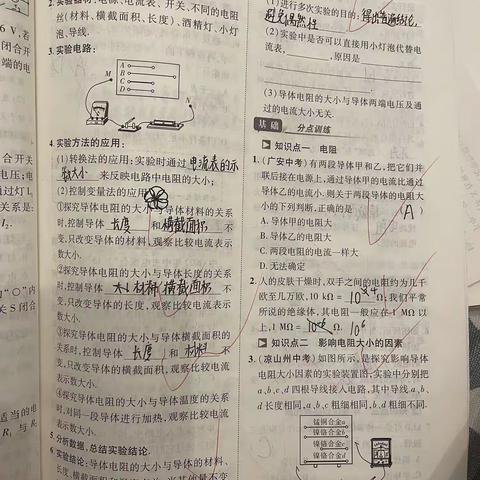 2.实验器材:电源、电流表、开关、不同的电阻
丝(材料、横截面积、长度)、酒精灯、小灯
泡、导线.
3.实验电路:
A
B
C
D
M
N
4.实验方法的应用:
(1)转换法的应用:实验时通过 电流表的示
数大小 来反映电路中电阻的大小;
(2)控制变量法的应用
①探究导体电阻的大小与导体材料的关系
时,控制导体 长度 和 横截面积 不
变,只改变导体的材料,观察比较电流表示
数大小.
②探究导体电阻的大小与导体长度的关系
时,控制导体 材料 横截面积 不
变,只改变导体的长度,观察比较电流表示
数大小.
③探究导体电阻的大小与导体横截面积的
关系时,控制导体 长度 和 材料 不
变,只改变导体的横截面积,观察比较电流
表示数大小.
④探究导体电阻的大小与导体温度的关系
时,对同一段导体进行加热,观察比较电流
表示数大小.
5.分析数据,总结实验结论.
6.实验结论:导体电阻的大小与导体的材料、
长度、横截面积和温度有关,当其他量不变
6 V,若
闭合开
端的电
合开关
电压;电
过灯L
关系是:
I₂.
为“○”内
关S闭合
适当的电
R₁ 与 R₂
(1)进行多次实验的目的: 得出普遍结论,
避免偶然性
(2)实验中是否可以直接用小灯泡代替电
流表,
,原因是
(3)导体电阻的大小与导体两端电压及通
过的电流大小无关.
基础 分点训练
知识点一 电阻
1.(广安中考)有两段导体甲和乙,把它们并
联后接在电源上,通过导体甲的电流比通过
导体乙的电流小.则关于两段导体的电阻大
小的下列判断,正确的是 (A)
A.导体甲的电阻大
B.导体乙的电阻大
C.两段电阻的电流一样大
D.无法确定
2.人的皮肤干燥时,双手之间的电阻约为几千
欧至几万欧,10 kΩ= 10⁴ Ω;我们平常
所说的绝缘体,其电阻一般应在1 MΩ以
上,1 MΩ= 10⁶
知识点二 影响电阻大小的因素
3.(凉山州中考)如图所示,是探究影响导体
电阻大小因素的实验装置图,实验中分别把
a、b、c、d四根导线接入电路,其中导线a、b、
d长度相同,a、b、c粗细相同,b、d粗细不同.
锰铜合金a
镍铬合金b
镍铬合金c
镍铬合金d